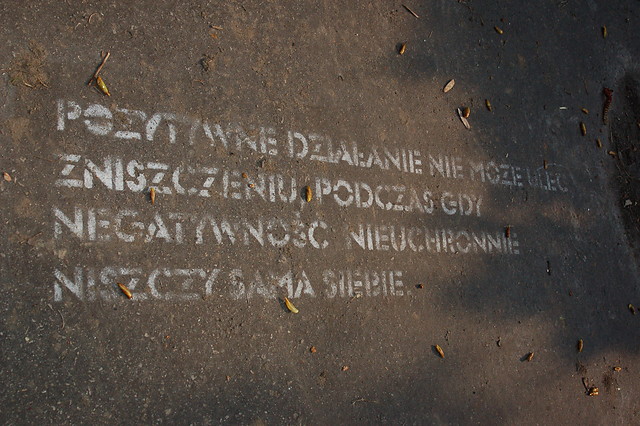 POZYTYWNE DZIAŁANIE NIE MOŻE ULEC
ZNISZCZENIU PODCZAS GDY
NEGATYWNOŚĆ NIEUCHRONNIE
NISZCZY SAMA SIEBIE.